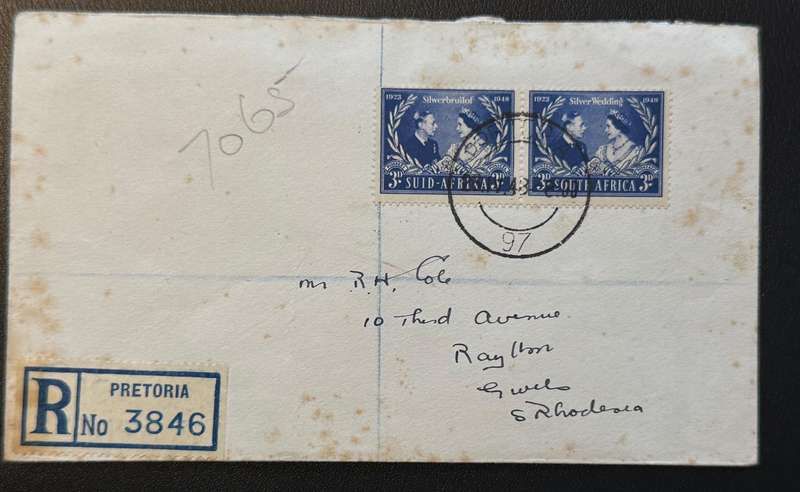 7065
1923 Silwerbruilof 1948
3D SUID-AFRIKA 3D
1923 Silver Wedding 1948
3D SOUTH AFRICA 3D
97
Mr R.H. Cole
10 Third Avenue
Raylton
Gwelo
S Rhodesia
R PRETORIA
No 3846